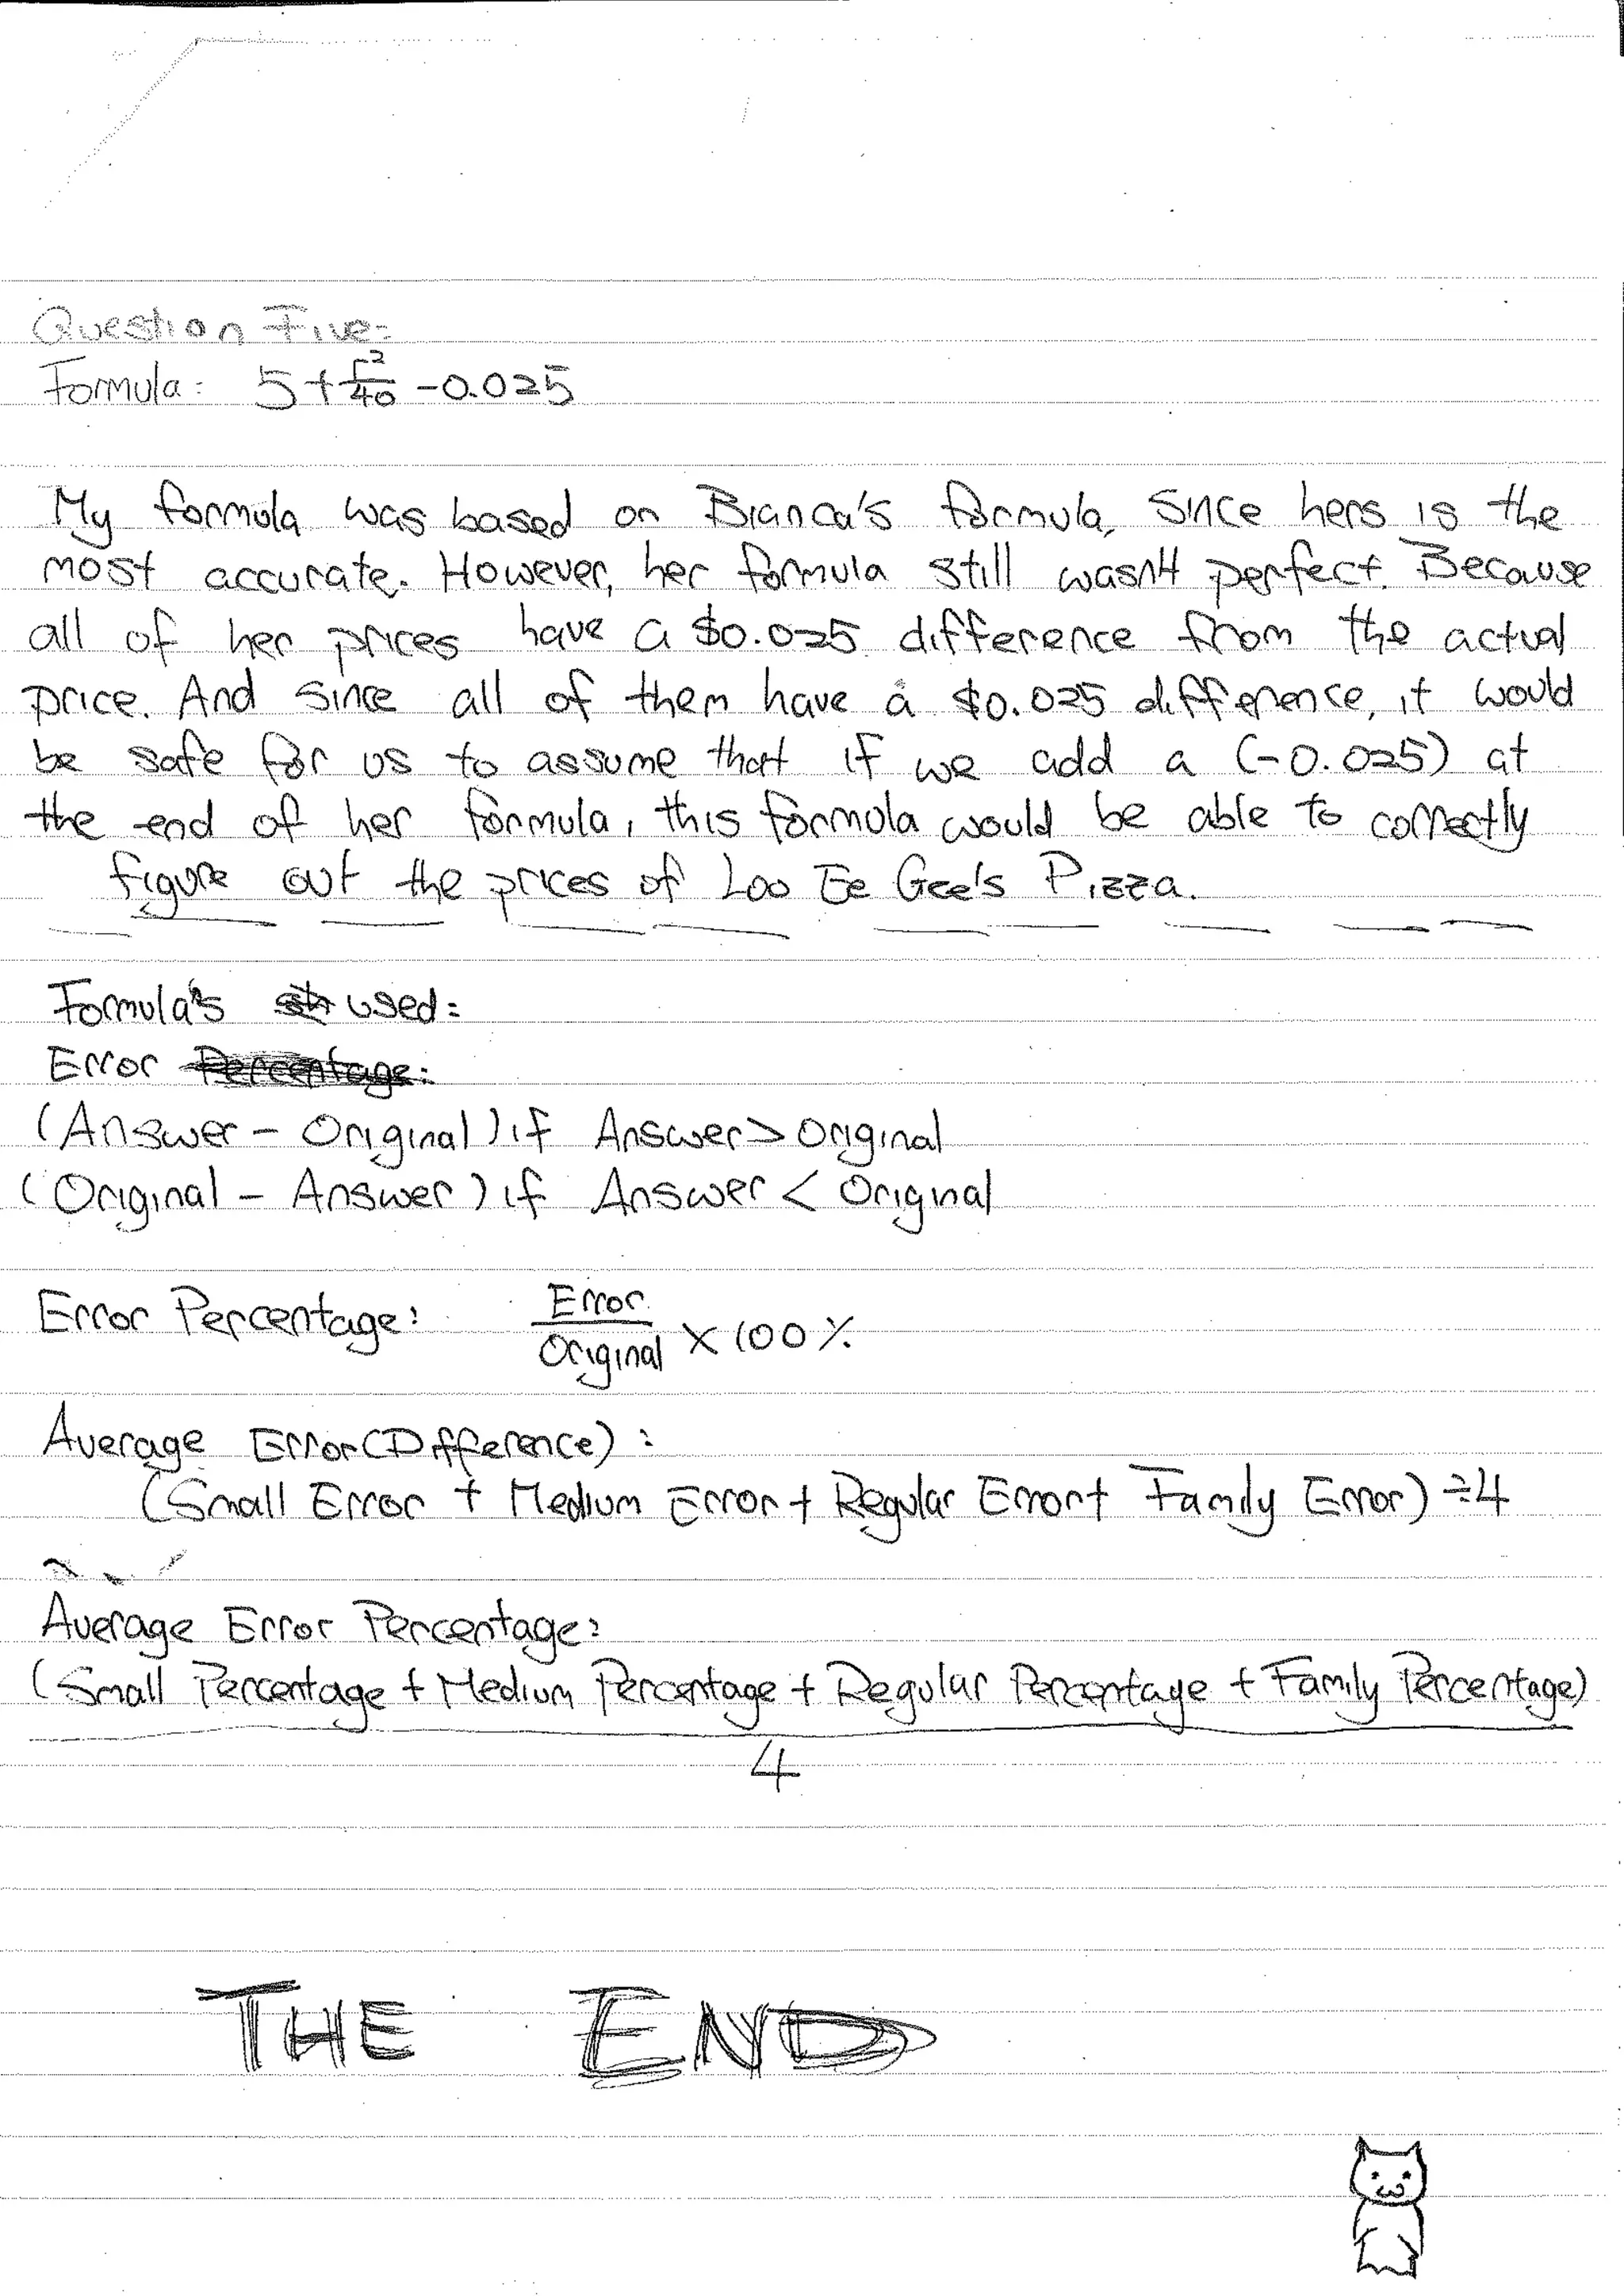 Question Five:
Formula: 5 + r²/40 - 0.025
My formula was based on Bianca's formula, since hers is the
most accurate. However, her formula still wasn't perfect. Because
all of her prices have a $0.025 difference from the actual
price. And since all of them have a $0.025 difference, it would
be safe for us to assume that if we add a (-0.025) at
the end of her formula, this formula would be able to correctly
figure out the prices of Loo Ee Gee's Pizza.
Formula's used:
Error Percentage:
(Answer - Original) if Answer > Original
(Original - Answer) if Answer < Original
Error Percentage: Error/Original × 100%
Average Error (Difference):
(Small Error + Medium Error + Regular Error + Family Error) ÷ 4
Average Error Percentage:
(Small Percentage + Medium Percentage + Regular Percentage + Family Percentage)
4
THE END